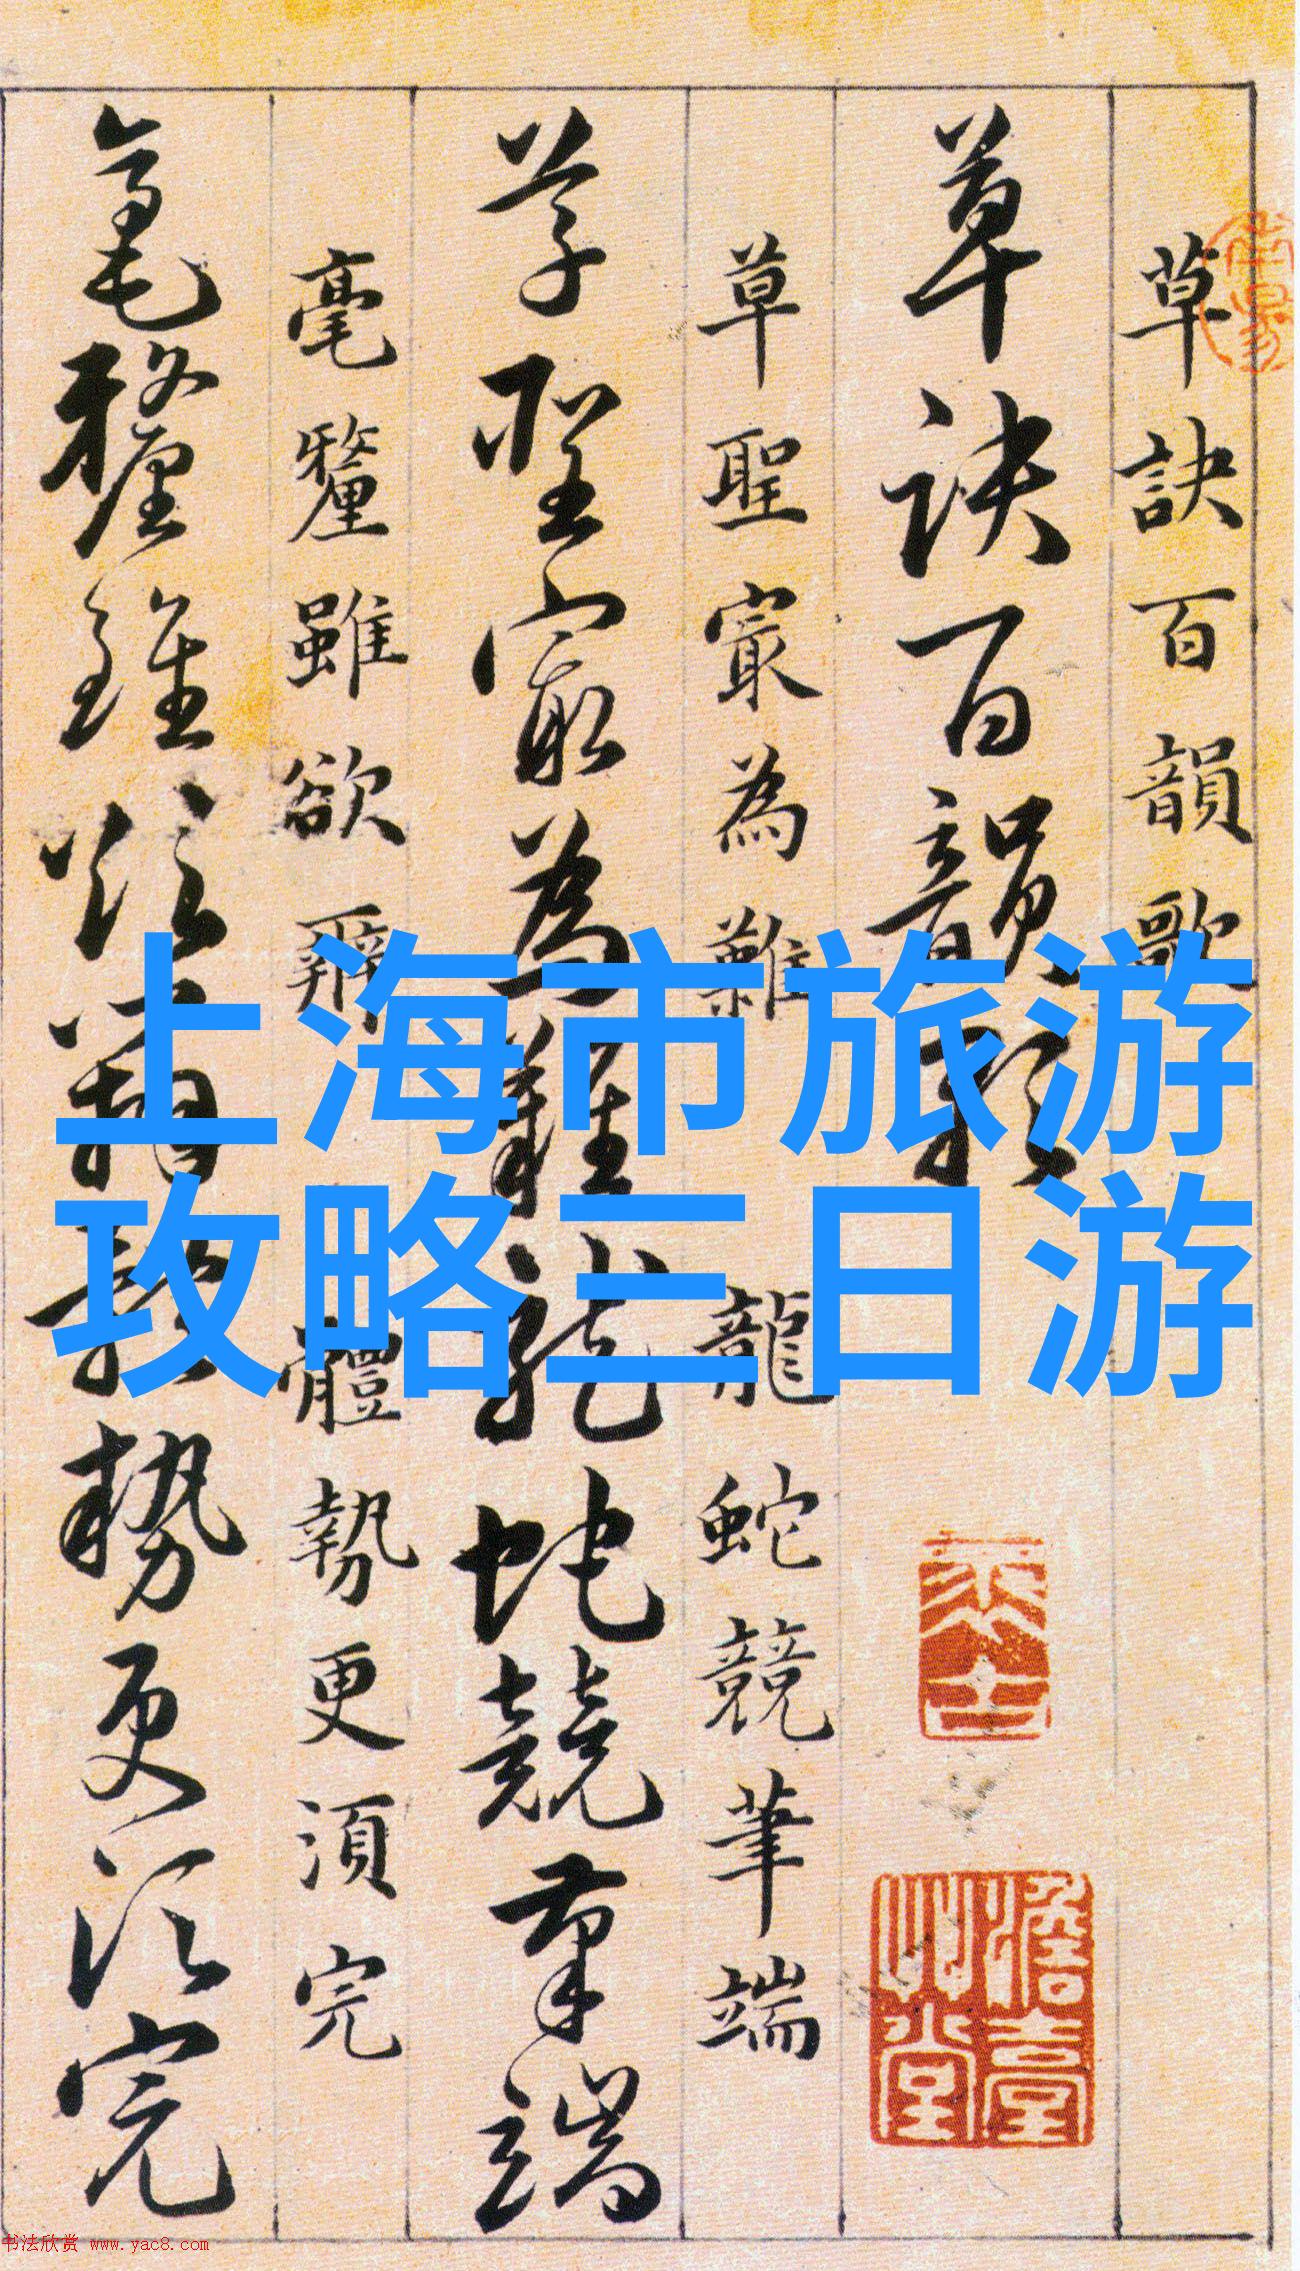 草訣百韻歌
草訣百韻歌
草聖寂為難
龍蛇競筆端
草聖寂為難龍蛇競筆端
毫釐雖欲辨
體勢更須完
毫釐雖欲辨體勢更須完
上海市旅游
攻略三日游
书法欣赏 www.yac8.com